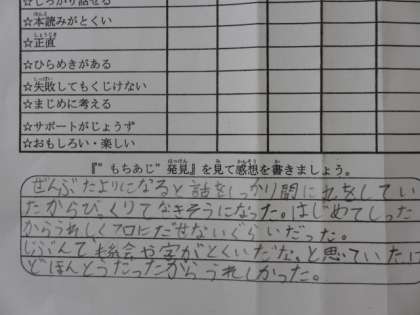 ☆しっかり話せる
☆本読みがとくい
☆正直
☆ひらめきがある
☆失敗してもくじけない
☆まじめに考える
☆サポートがじょうず
☆おもしろい・楽しい
『“もちあじ”発見』を見て感想を書きましょう。
ぜんぶたよりになると話をしっかり聞に丸をしてい
たからびっくりてなきそうになった。はじめてしった
からうれしくて口にだせないぐらいだった。
じぶんでも絵や字がとくいだな。と思っていたけ
どほんとうだったからうれしかった。